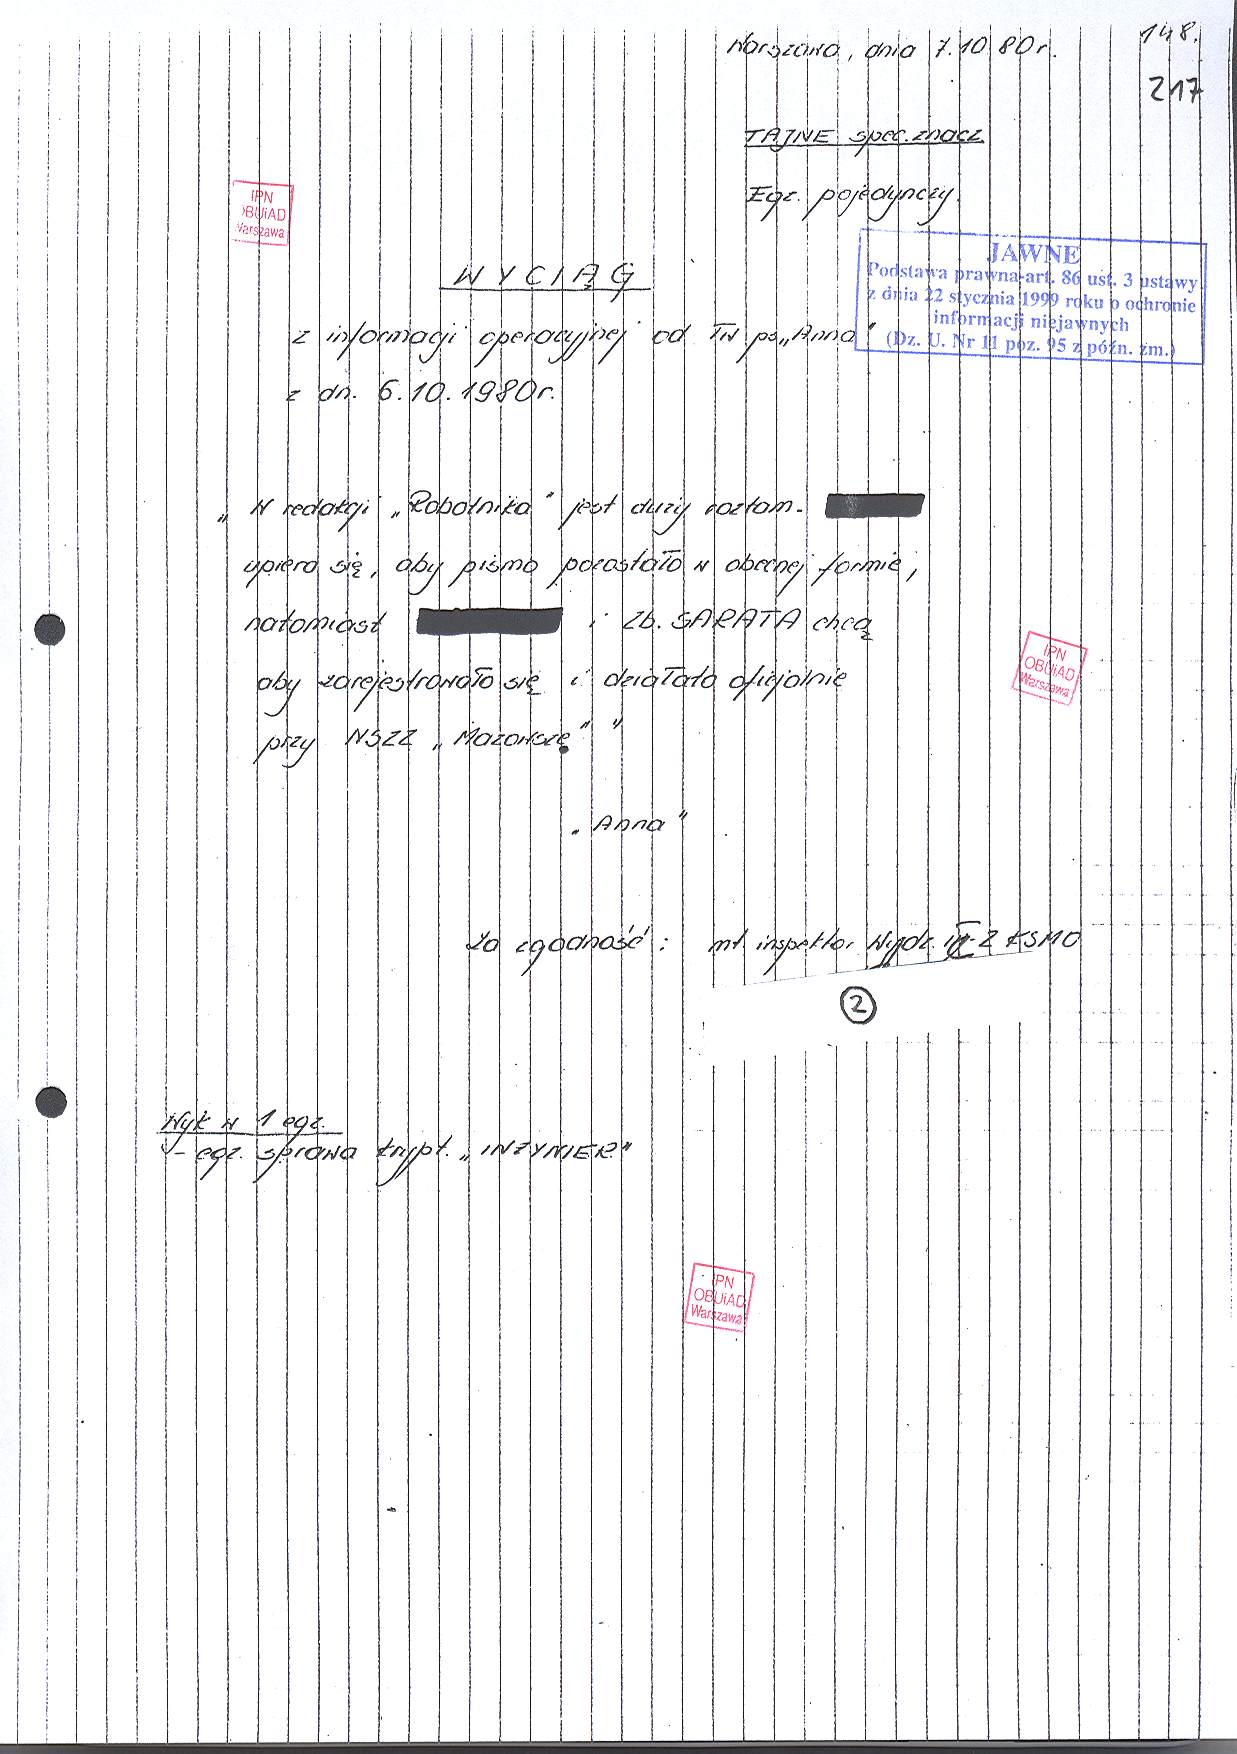 148.
Warszawa, dnia 7.10.80r.
217
TAJNE spec.znacz.
Egz. pojedynczy.
IPN
OBUiAD
Warszawa
JAWNE
Podstawa prawna-art. 86 ust. 3 ustawy
z dnia 22 stycznia 1999 roku o ochronie
informacji niejawnych
(Dz. U. Nr 11 poz. 95 z późn. zm.)
WYCIĄG
z informacji operacyjnej od TW ps „Anna"
z dn. 6.10.1980r.
„W redakcji „Robotnika" jest duży rozłam.
upiera się, aby pismo pozostało w obecnej formie,
natomiast i Zb. SARATA chcą
aby zarejestrowało się i działało oficjalnie
przy NSZZ „Mazowsze" "
IPN
OBUiAD
Warszawa
„Anna"
Za zgodność: mł. inspektor Wydz. III-2 KSMO
2
Wyk w 1 egz.
- egz. sprawa krypt. „INŻYNIER"
IPN
OBUiAD
Warszawa